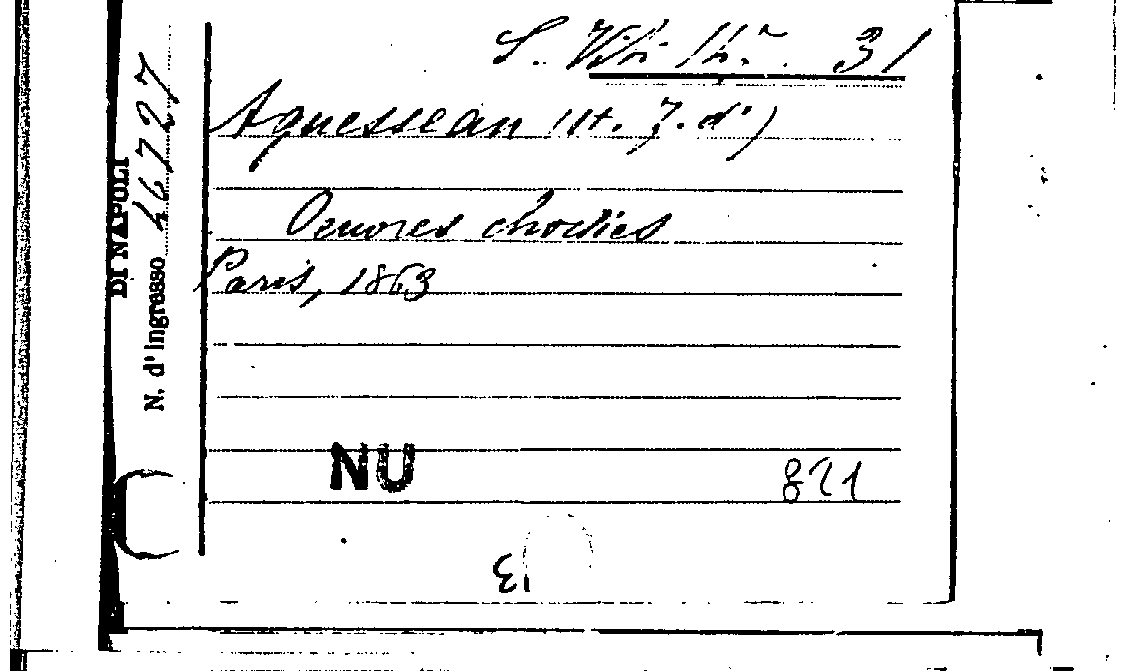 S. 31
Aguesseau (H. F. d')
Oeuvres choisies
Paris, 1863
NU
821
13
DI NAPOLI
N. d'ingresso 46727